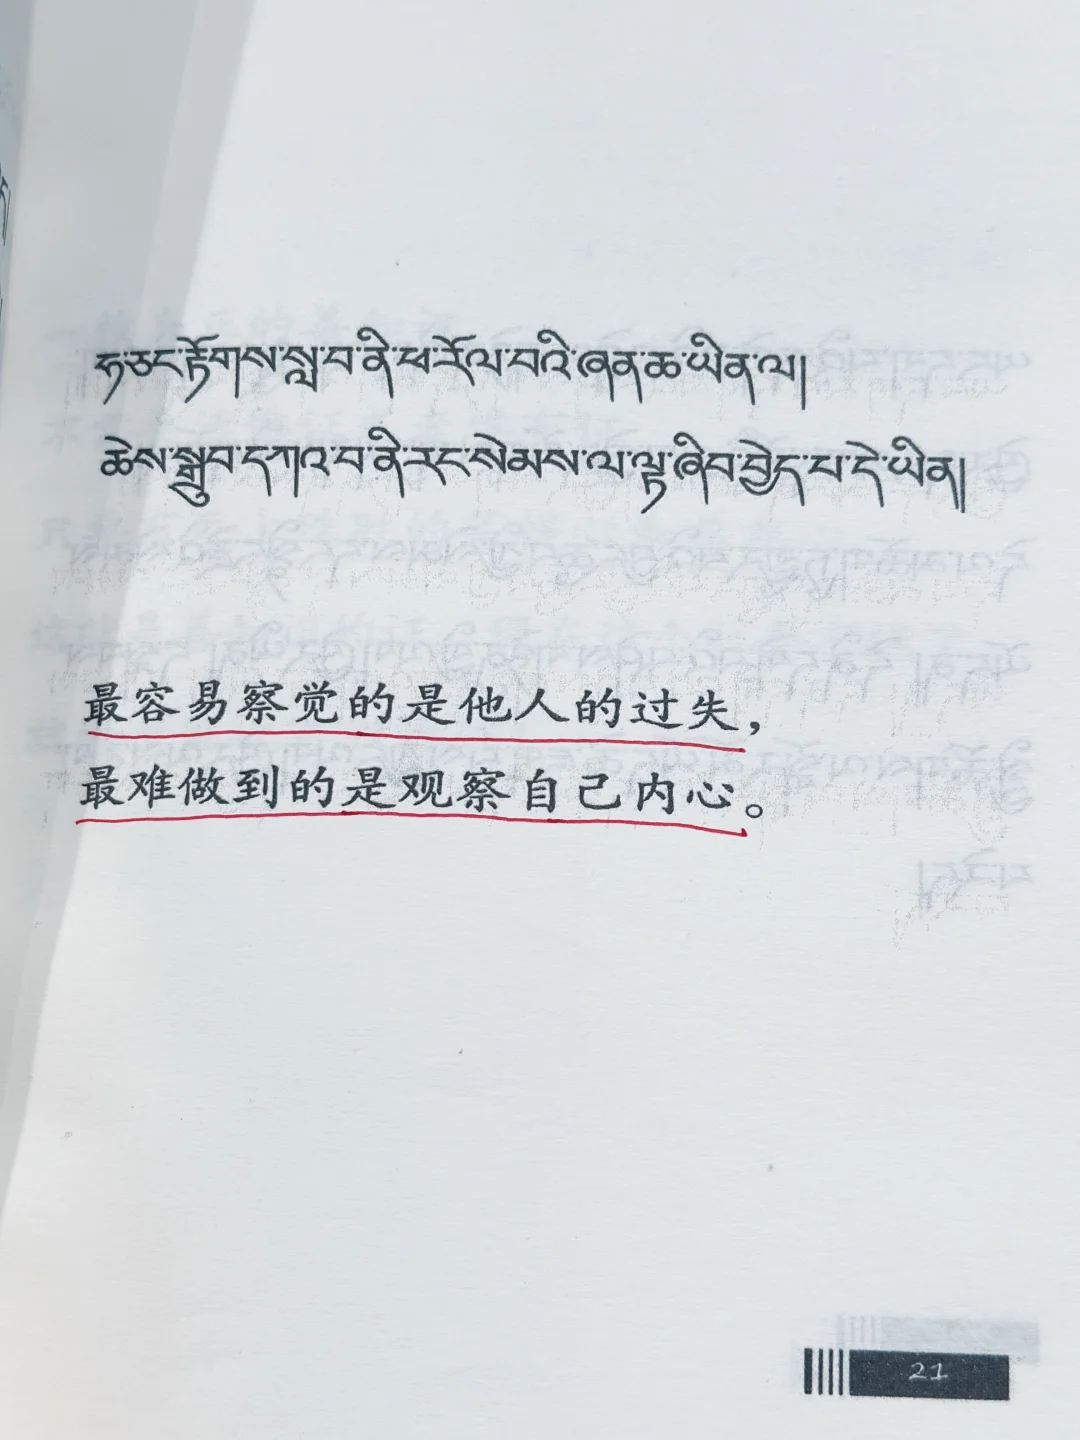 ཧ་ཅང་རྟོགས་སླ་བ་ནི་ཕ་རོལ་བའི་ཞན་ཆ་ཡིན་ལ།
ཆེས་སྒྲུབ་དཀའ་བ་ནི་རང་སེམས་ལ་ལྟ་ཞིབ་བྱེད་པ་དེ་ཡིན།
最容易察觉的是他人的过失，
最难做到的是观察自己内心。
21